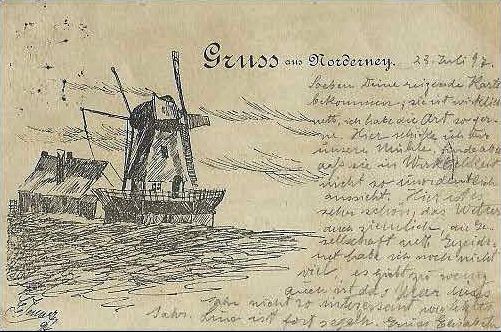 Gruss aus Norderney.
23. Juli 97.
Soeben Deine reizende Karte
bekommen, sie ist wirklich
nett, ich habe die Art so gerne
. Hier schicke ich Dir
unsere Mühle, finde aber
daß sie in Wirklichkeit
nicht so unordentlich
aussieht. Hier ist es
sehr schön, das Wetter
auch ziemlich, die Ge-
sellschaft nett. Gezeich-
net habe ich noch nicht
viel, es giebt zu wenig
ist das Meer dies
Jahr nicht so interessant
ist fort Gruß Elisabeth